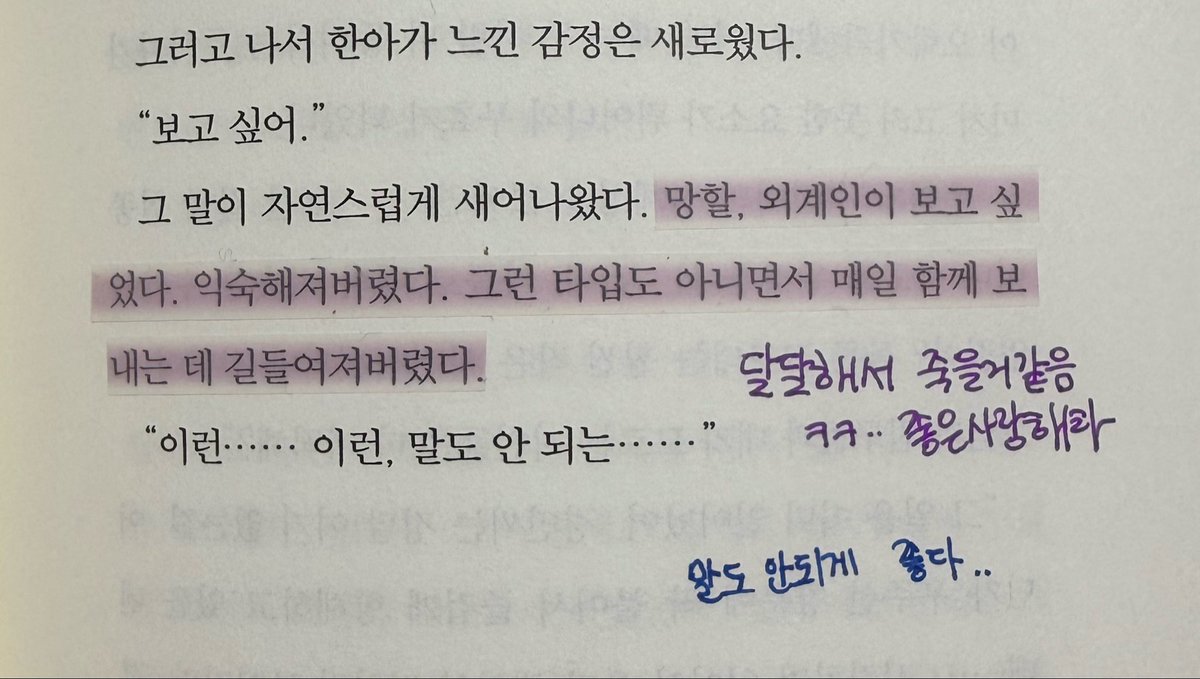 그러고 나서 한아가 느낀 감정은 새로웠다.
“보고 싶어.”
그 말이 자연스럽게 새어나왔다. 망할, 외계인이 보고 싶
었다. 익숙해져버렸다. 그런 타입도 아니면서 매일 함께 보
내는 데 길들여져버렸다.
“이런…… 이런, 말도 안 되는……”
달달해서 죽을거같음
ㅋㅋ.. 좋은사랑해라
말도 안되게 좋다..